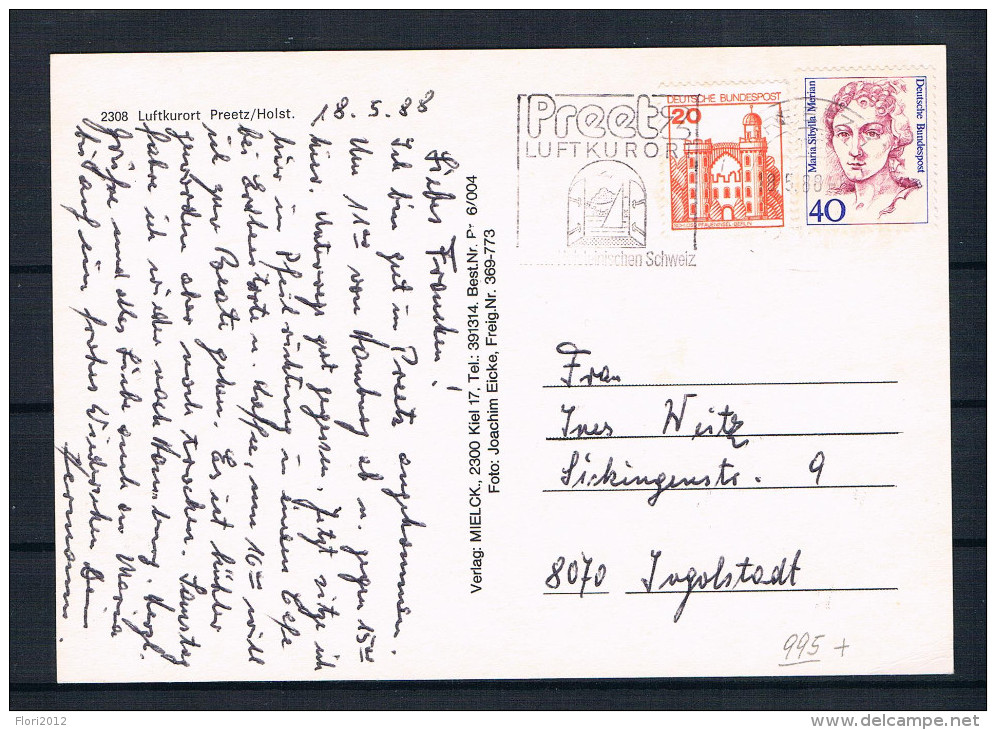 2308 Luftkurort Preetz/Holst.
18.5.88
Liebes Frauchen!
Ich bin gut in Preetz angekommen.
Um 11⁰⁰ von Hamburg ab u. gegen 15⁰⁰
hier. Unterwegs gut gegessen. Jetzt sitze ich
hier in in einem Cafe
bei u. Kaffee, um 16⁰⁰ will
ich zur Beate gehen. Es ist kühler
geworden aber noch trocken. Samstag
fahre ich wieder nach Hamburg. Herzl.
Grüße und alles Liebe auch an Maria
bis auf ein frohes Wiedersehen Dein
Hermann.
Verlag: MIELCK., 2300 Kiel 17, Tel.: 391314. Best.Nr. Pr 6/004
Foto: Joachim Eicke, Freig.Nr. 369-773
Preetz
LUFTKURORT
Holsteinischen Schweiz
DEUTSCHE BUNDESPOST
20
SCHLOSS PFAUENINSEL BERLIN
Maria Sibylla Merian
Deutsche Bundespost
40
5.88
Frau
Ines Weitz
Sickingenstr. 9
8070 Ingolstadt
995 +
Flori2012
www.delcampe.net